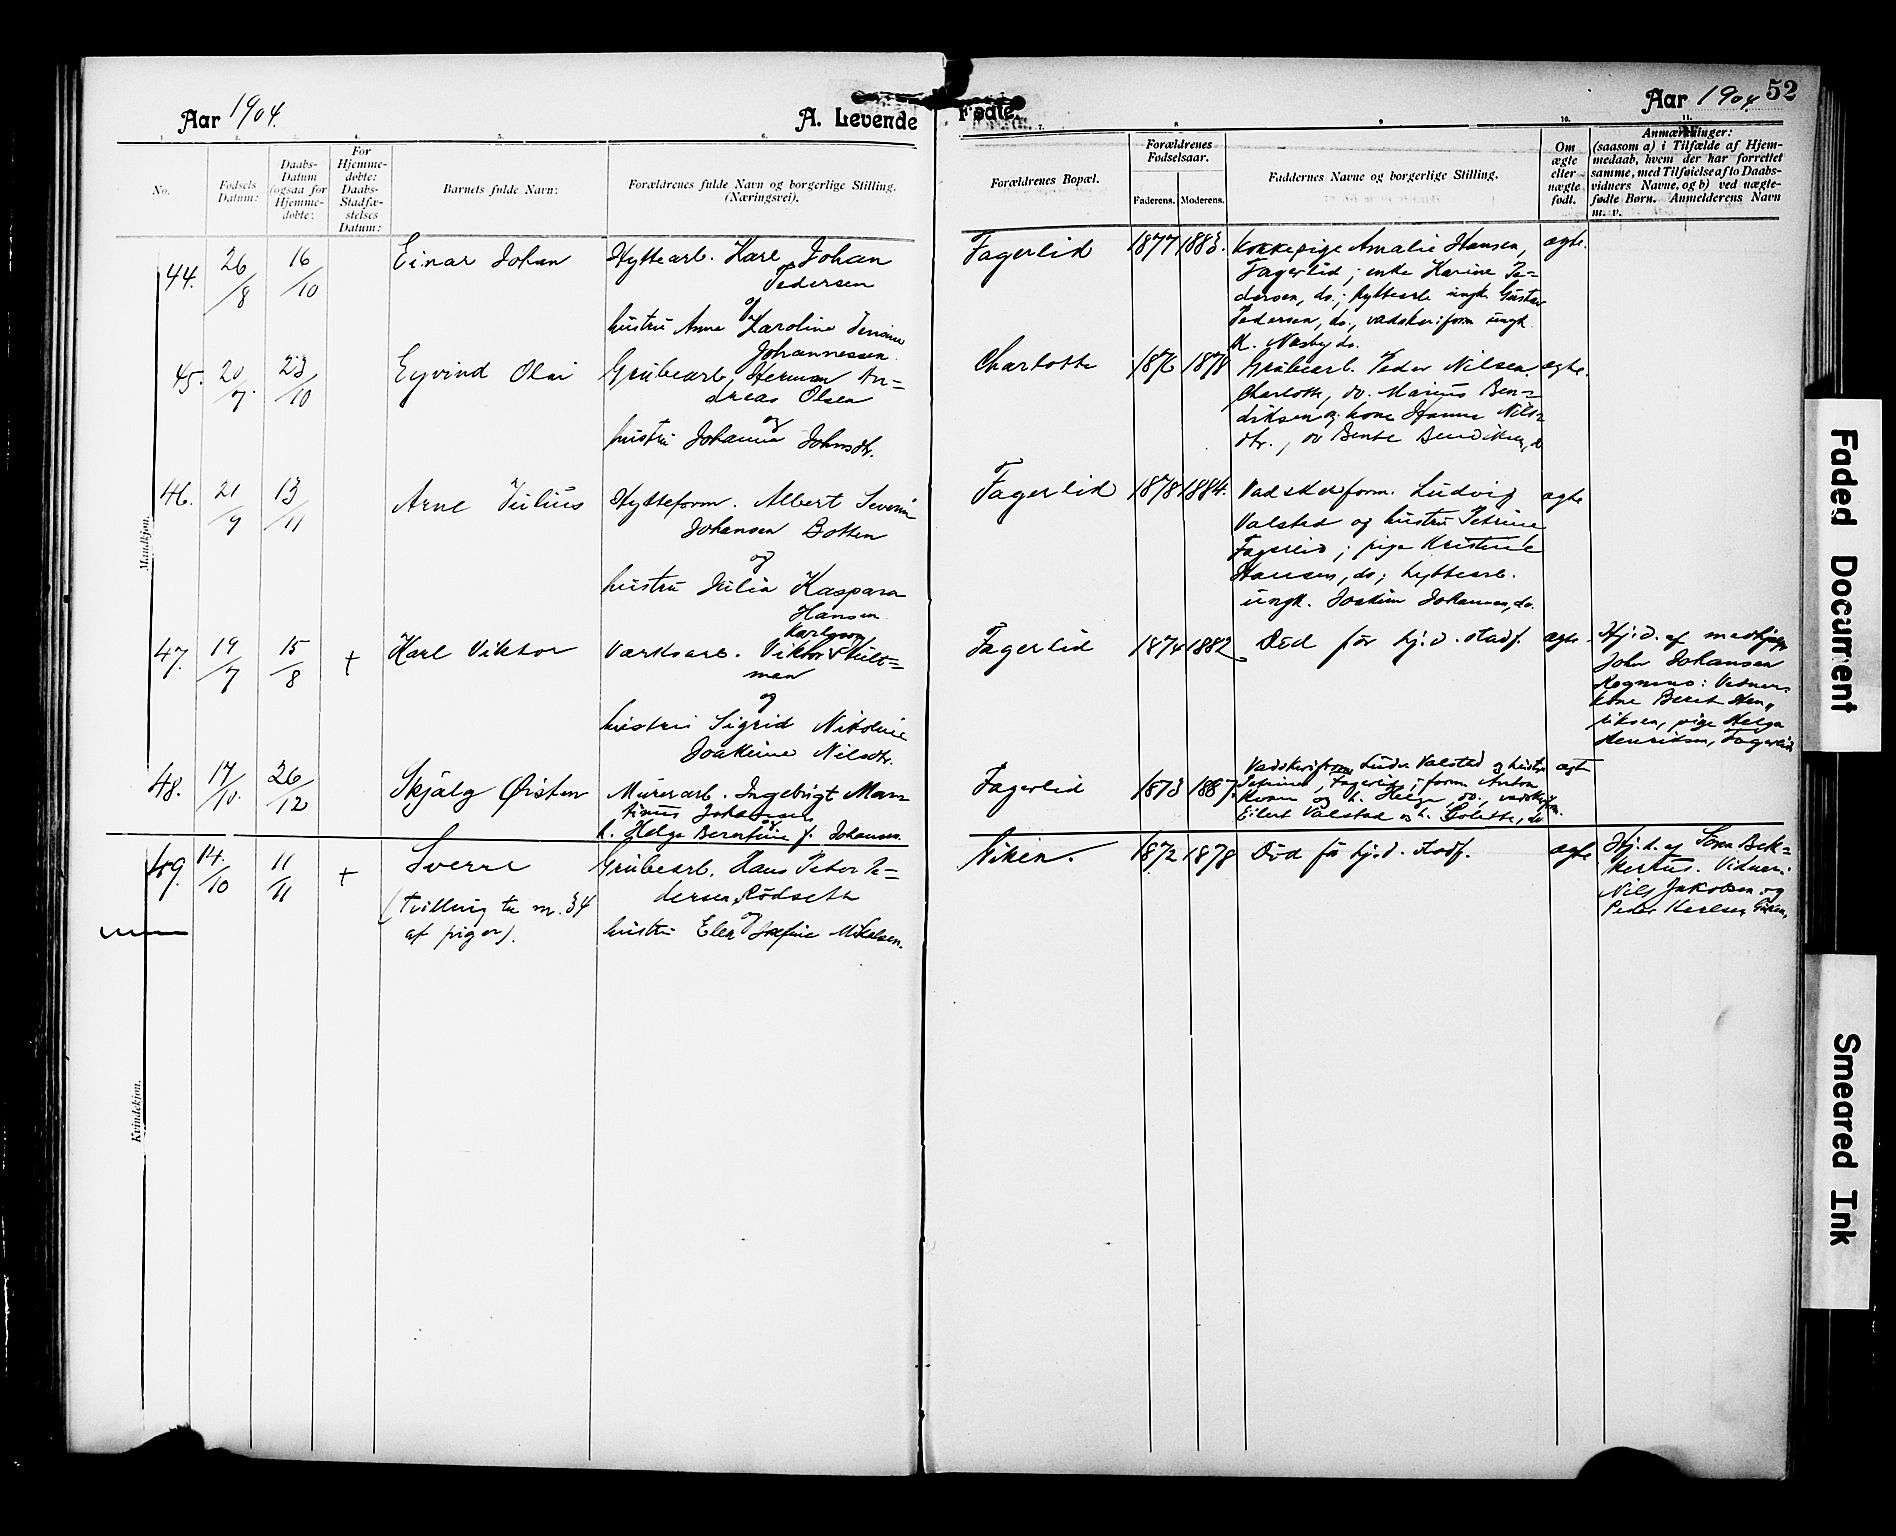 Aar 1904.
A. Levende
Fødte.
Aar 1904.
52
1. 2. 3. 4. 5. 6. 7. 8. 9. 10. 11.
No.
Fødsels
Datum:
Daabs-
Datum
(ogsaa for
Hjemme-
døbte:
For
Hjemme-
døbte:
Daabs-
Stadfæ-
stelses
Datum:
Barnets fulde Navn:
Forældrenes fulde Navn og borgerlige Stilling.
(Næringsvei).
Forældrenes Bopæl.
Forældrenes
Fødselsaar.
Faderens. Moderens.
Faddernes Navne og borgerlige Stilling.
Om
ægte
eller
uægte
født.
Anmærkninger:
(saasom a) i Tilfælde af Hjem-
medaab, hvem der har forrettet
samme, med Tilføielse af to Daabs-
vidners Navne, og b) ved uægte-
fødte Børn. Anmelderens Navn
m. v.
Mandkjøn.
44. 26/8 16/10 Einar Johan
Hyttearb. Karl Johan
Pedersen
og
hustru Anna Karoline
Johannessen.
Fagerlid 1877 1883.
Kokkepige Amalie Hansen,
Fagerlid; enke Karine Pe=
dersen, do.; hyttearb. ungk. Gustav
Pedersen, do., vadskeriform. ungk.
K. Næsby do.
ægte.
45. 20/7. 23/10 Eyvind Olai
Grubearb. Herman An=
dreas Olsen
og
hustru Johanna Johnsdtr.
Charlotta 1876 1878
Grubearb. Peder Nilsen,
Charlotta, do. Marius Ben=
diksen og kone Hanna Nils=
dtr., do Bente Bendiksen, do
ægte.
46. 21/9 13/11 Arne Julius
Hytteform. Albert Severin
Johansen Botten
og
hustru Julia Kaspara
Hansen
Fagerlid 1878 1884.
Vadskeriform. Ludvig
Valstad og hustru Petrine
Fagerlid; pige Kristine
Hansen, do; hyttearb.
ungk. Joakim Johansen, do.
ægte
47. 19/7 15/8 + Karl Viktor
Karlsson
Værksarb. Viktor Hult=
man
og
hustru Sigrid Nikoline
Joakime Nilsdtr.
Fagerlid 1874 1882
Død før hj.d. stadf.
ægte.
Hj.d. af
John Johansen
Vidner:
kone Berit Hen=
riksen, pige Helga
Henriksen, Fagerlid
48. 17/10. 26/12 Skjalg Øisten
Murerarb. Ingebrigt Mar=
tinus Johansen
og
h. Helga Berntine f. Johansen.
Fagerlid 1873 1887.
Vadskeriform. Ludv. Valstad og hustru
Petrine, Fagerlid; form. Anton
og h. Helga, do., vadskeriform.
Eilert Valstad og h. Colette, do
ægte
Kvindekjøn.
49. 14./10 11/11 + Sverre
(tvilling til nr. 34
af piger).
Grubearb. Hans Peter Pe=
dersen Rødseth
og
hustru Elen Josefine Mikalsen.
Giken. 1872 1878
Død før hj.d. stadf.
ægte
Hj.d. af Søren Bek=
kertus. Vidner:
Nils Jakobsen og
Peder Karlsen, Giken,
Faded Document
Smeared Ink